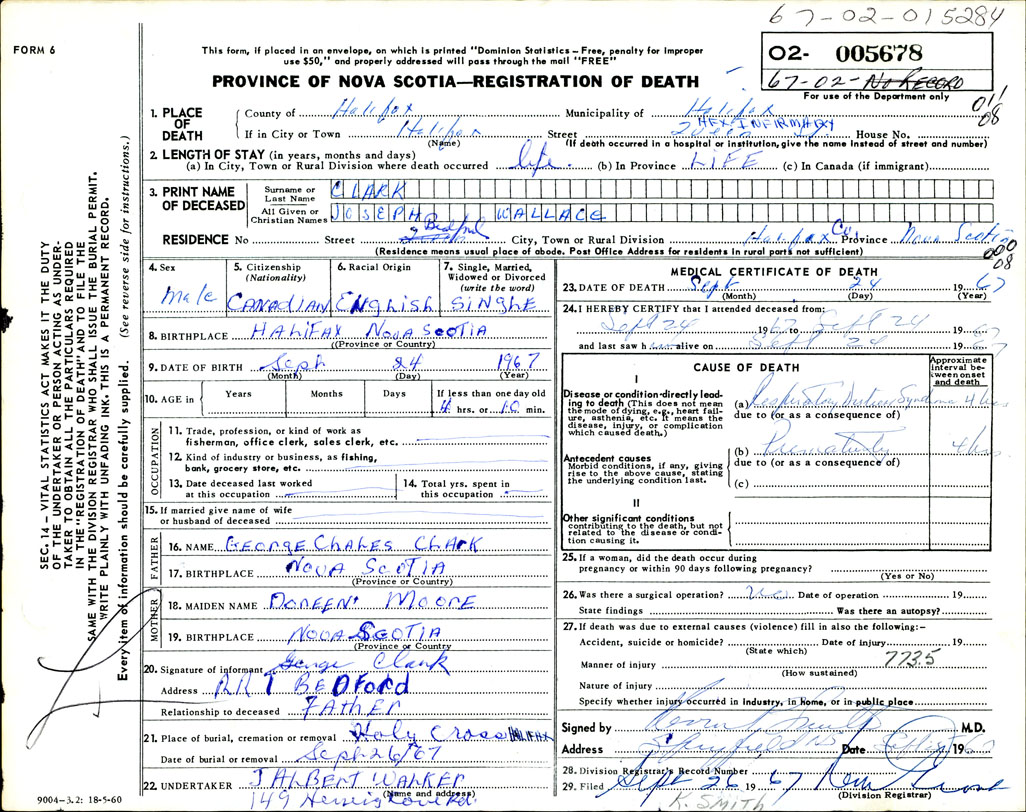 67-02-015284
FORM 6
This form, if placed in an envelope, on which is printed "Dominion Statistics – Free, penalty for improper
use $50," and properly addressed will pass through the mail "FREE"
PROVINCE OF NOVA SCOTIA—REGISTRATION OF DEATH
02- 005678
67-02- No RECORD
For use of the Department only
011
08
1. PLACE OF DEATH
County of Halifax Municipality of Halifax
HFX INFIRMARY
If in City or Town Halifax Street Queen House No.
(Name) (If death occurred in a hospital or institution, give the name instead of street and number)
2. LENGTH OF STAY (in years, months and days)
(a) In City, Town or Rural Division where death occurred life. (b) In Province LIFE (c) In Canada (if immigrant)
3. PRINT NAME OF DECEASED
Surname or Last Name CLARK
All Given or Christian Names JOSEPH WALLACE
RESIDENCE No Street Bedford City, Town or Rural Division Halifax Co. Province Nova Scotia
(Residence means usual place of abode. Post Office Address for residents in rural parts not sufficient)
000
08
4. Sex male
5. Citizenship (Nationality) CANADIAN
6. Racial Origin ENGHISH
7. Single, Married, Widowed or Divorced (write the word) SINGHE
8. BIRTHPLACE HALIFAX NOVA SCOTIA
(Province or Country)
9. DATE OF BIRTH Seph 24 1967
(Month) (Day) (Year)
10. AGE in Years Months Days If less than one day old
4 hrs. or 10 min.
OCCUPATION
11. Trade, profession, or kind of work as
fisherman, office clerk, sales clerk, etc.
12. Kind of industry or business, as fishing,
bank, grocery store, etc.
13. Date deceased last worked
at this occupation
14. Total yrs. spent in
this occupation
15. If married give name of wife
or husband of deceased
FATHER
16. NAME GEORGE CHALES CLARK
17. BIRTHPLACE NOVA SCOTIA
(Province or Country)
MOTHER
18. MAIDEN NAME DOREEN MOORE
19. BIRTHPLACE NOVA SCOTIA
(Province or Country)
20. Signature of informant George Clark
Address RR 1 BEDFORD
Relationship to deceased FATHER
21. Place of burial, cremation or removal Holy Cross HALIFAX
Date of burial or removal Seph 26/67
22. UNDERTAKER J ALBERT WALKER
(Name and address)
149
9004–3.2: 18-5-60
MEDICAL CERTIFICATE OF DEATH
23. DATE OF DEATH Sept 24 1967
(Month) (Day) (Year)
24. I HEREBY CERTIFY that I attended deceased from:
Sept 24 1967 to Sept 24 1967
and last saw him alive on Sept 24 1967
CAUSE OF DEATH
Approximate interval between onset and death
I
Disease or condition directly leading to death (This does not mean the mode of dying, e.g., heart failure, asthenia, etc. It means the disease, injury, or complication which caused death.)
(a) Respiratory Distress Syndrome 4 hrs
due to (or as a consequence of)
Antecedent causes
Morbid conditions, if any, giving rise to the above cause, stating the underlying condition last.
(b) Prematurity 4 hrs
due to (or as a consequence of)
(c)
II
Other significant conditions
contributing to the death, but not related to the disease or condition causing it.
25. If a woman, did the death occur during
pregnancy or within 90 days following pregnancy?
(Yes or No)
26. Was there a surgical operation? Date of operation 19
State findings Was there an autopsy?
27. If death was due to external causes (violence) fill in also the following:–
Accident, suicide or homicide? Date of injury 19
(State which)
Manner of injury 773.5
(How sustained)
Nature of injury
Specify whether injury occurred in Industry, in Home, or in public place
Signed by M.D.
Address Spryfield NS Date 1967
28. Division Registrar's Record Number
29. Filed Sept 26 1967
(Division Registrar)
K. SMITH
SEC. 14 – VITAL STATISTICS ACT MAKES IT THE DUTY
OF THE UNDERTAKER OR PERSON ACTING AS UNDER-
TAKER TO OBTAIN ALL THE PARTICULARS REQUIRED
IN THE "REGISTRATION OF DEATH" AND TO FILE THE
SAME WITH THE DIVISION REGISTRAR WHO SHALL ISSUE THE BURIAL PERMIT.
WRITE PLAINLY WITH UNFADING INK. THIS IS A PERMANENT RECORD.
Every item of information should be carefully supplied. (See reverse side for instructions.)